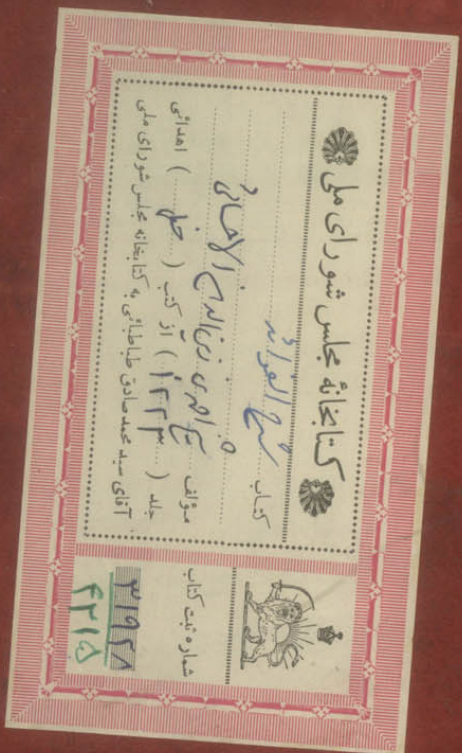 کتابخانهٔ مجلس شورای ملی
کتاب شرح الفوائد
مؤلف شیخ احمد بن زین الدین الاحسائی
جلد (۱۲۲۳) از کتب (خطی) اهدائی
آقای سید محمد صادق طباطبائی به کتابخانه مجلس شورای ملی
شماره ثبت کتاب
۳۱۹۲۸
۴۲۱۵